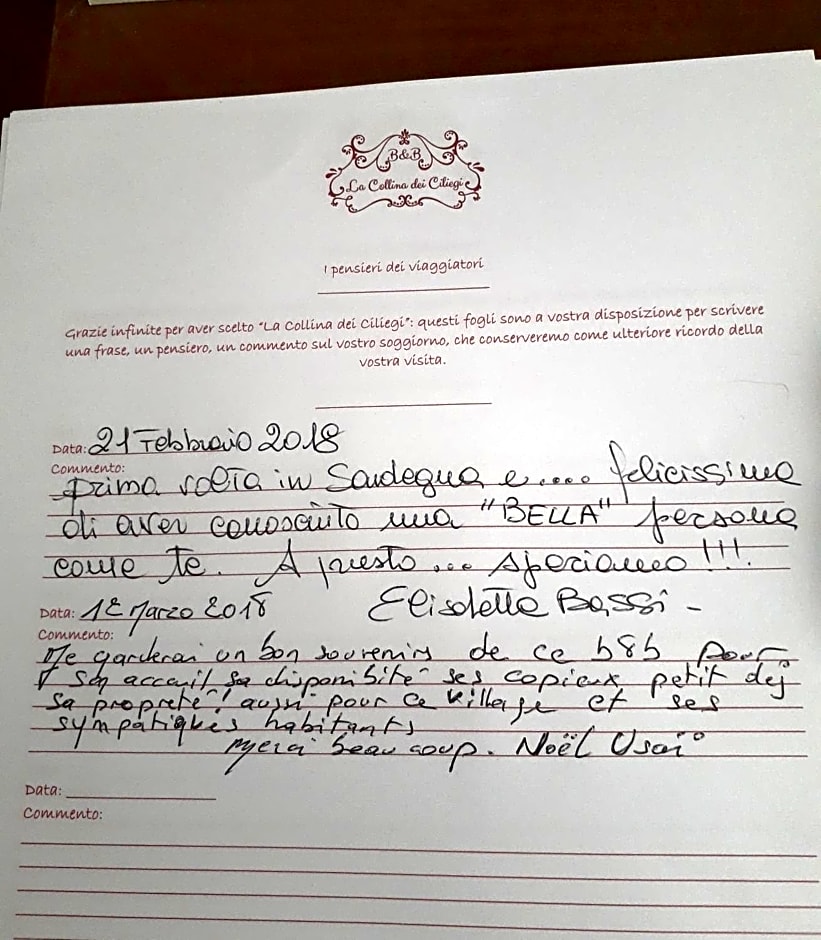 B&B
La Collina dei Ciliegi
I pensieri dei viaggiatori
Grazie infinite per aver scelto "La Collina dei Ciliegi": questi fogli sono a vostra disposizione per scrivere
una frase, un pensiero, un commento sul vostro soggiorno, che conserveremo come ulteriore ricordo della
vostra visita.
Data: 21 Febbraio 2018
Commento:
Prima volta in Sardegna e.... felicissima
di aver conosciuto una "BELLA" persona
come te. A presto... speriamo!!!
Elisabetta Bassi -
Data: 12 Marzo 2018
Commento:
garderai un bon souvenirs de ce b&b pour
son accueil, sa disponibité ses copieux petit dej
sa propreté! aussi pour ce village et ses
sympatiques habitants
Merci beaucoup. Noël Usai
Data:
Commento: